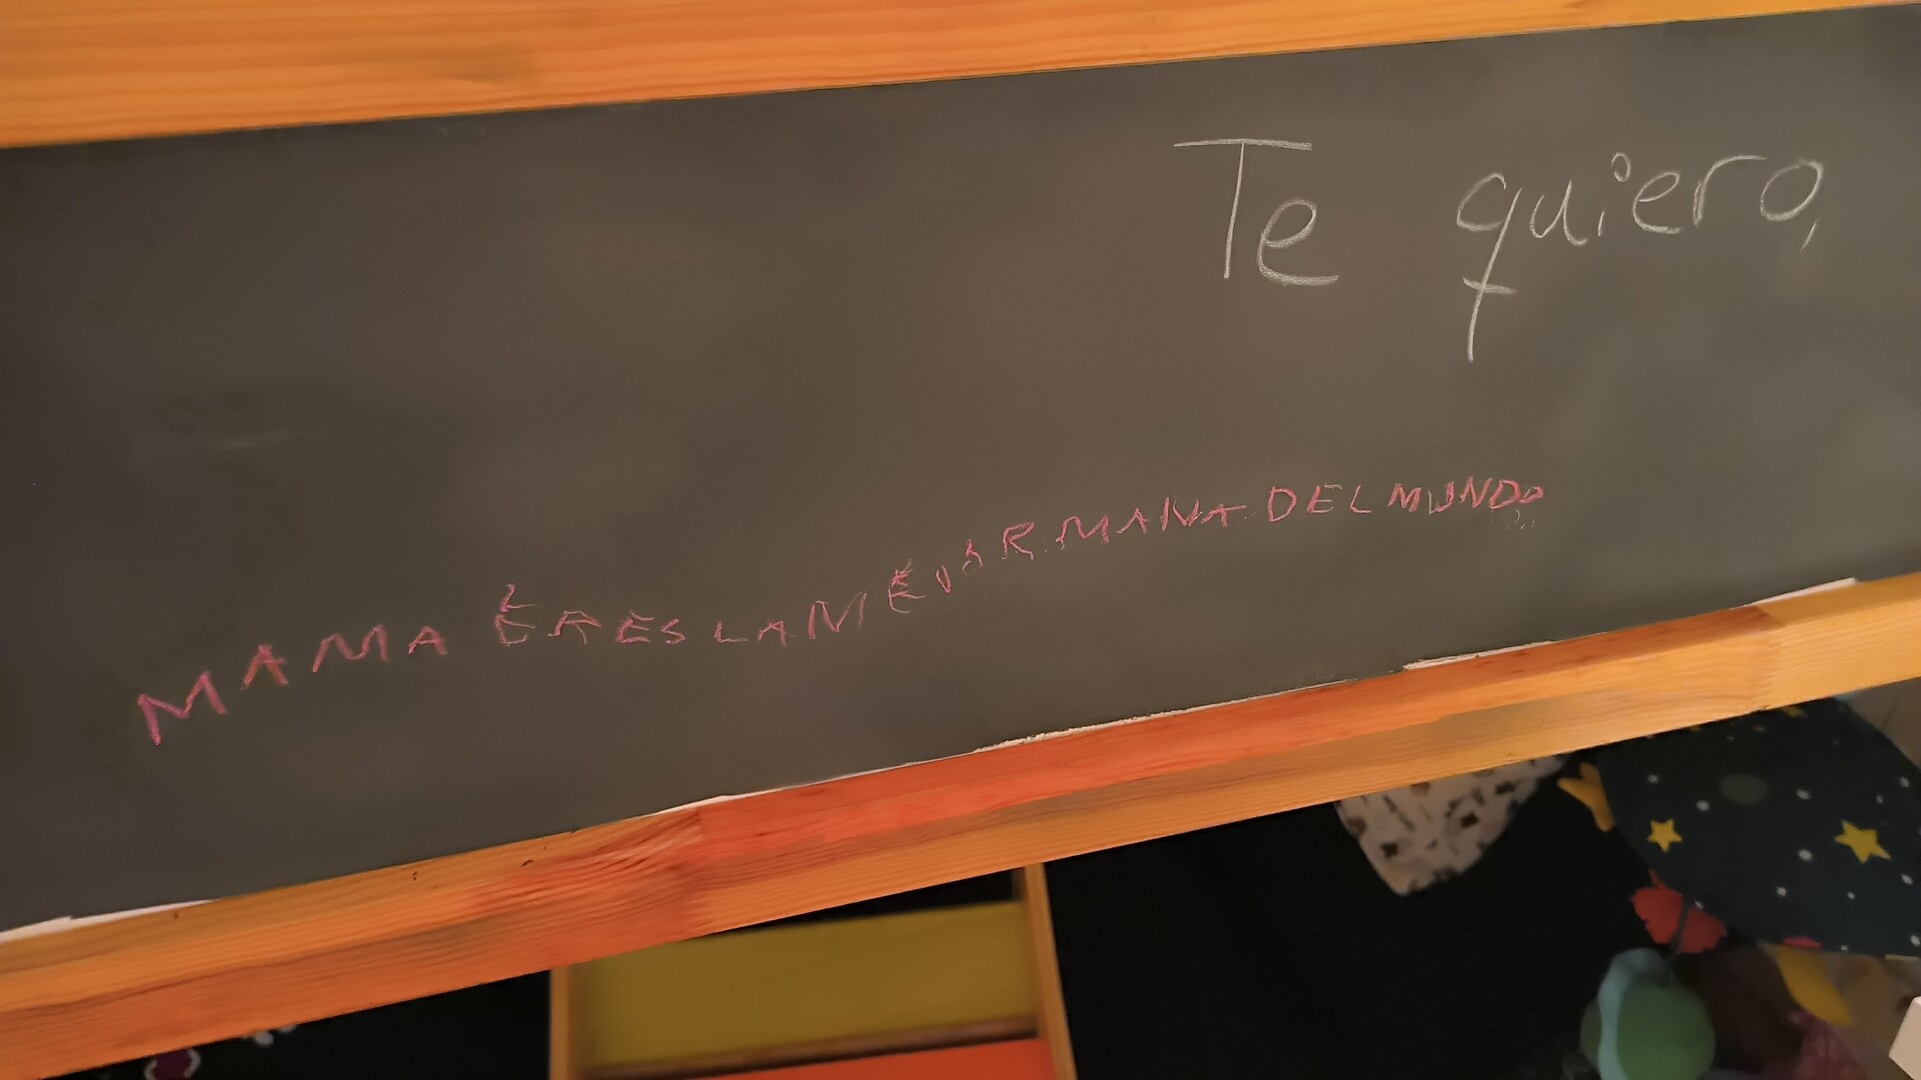 Te quiero,
MAMA ERES LA MEJOR MAMA DEL MUNDO